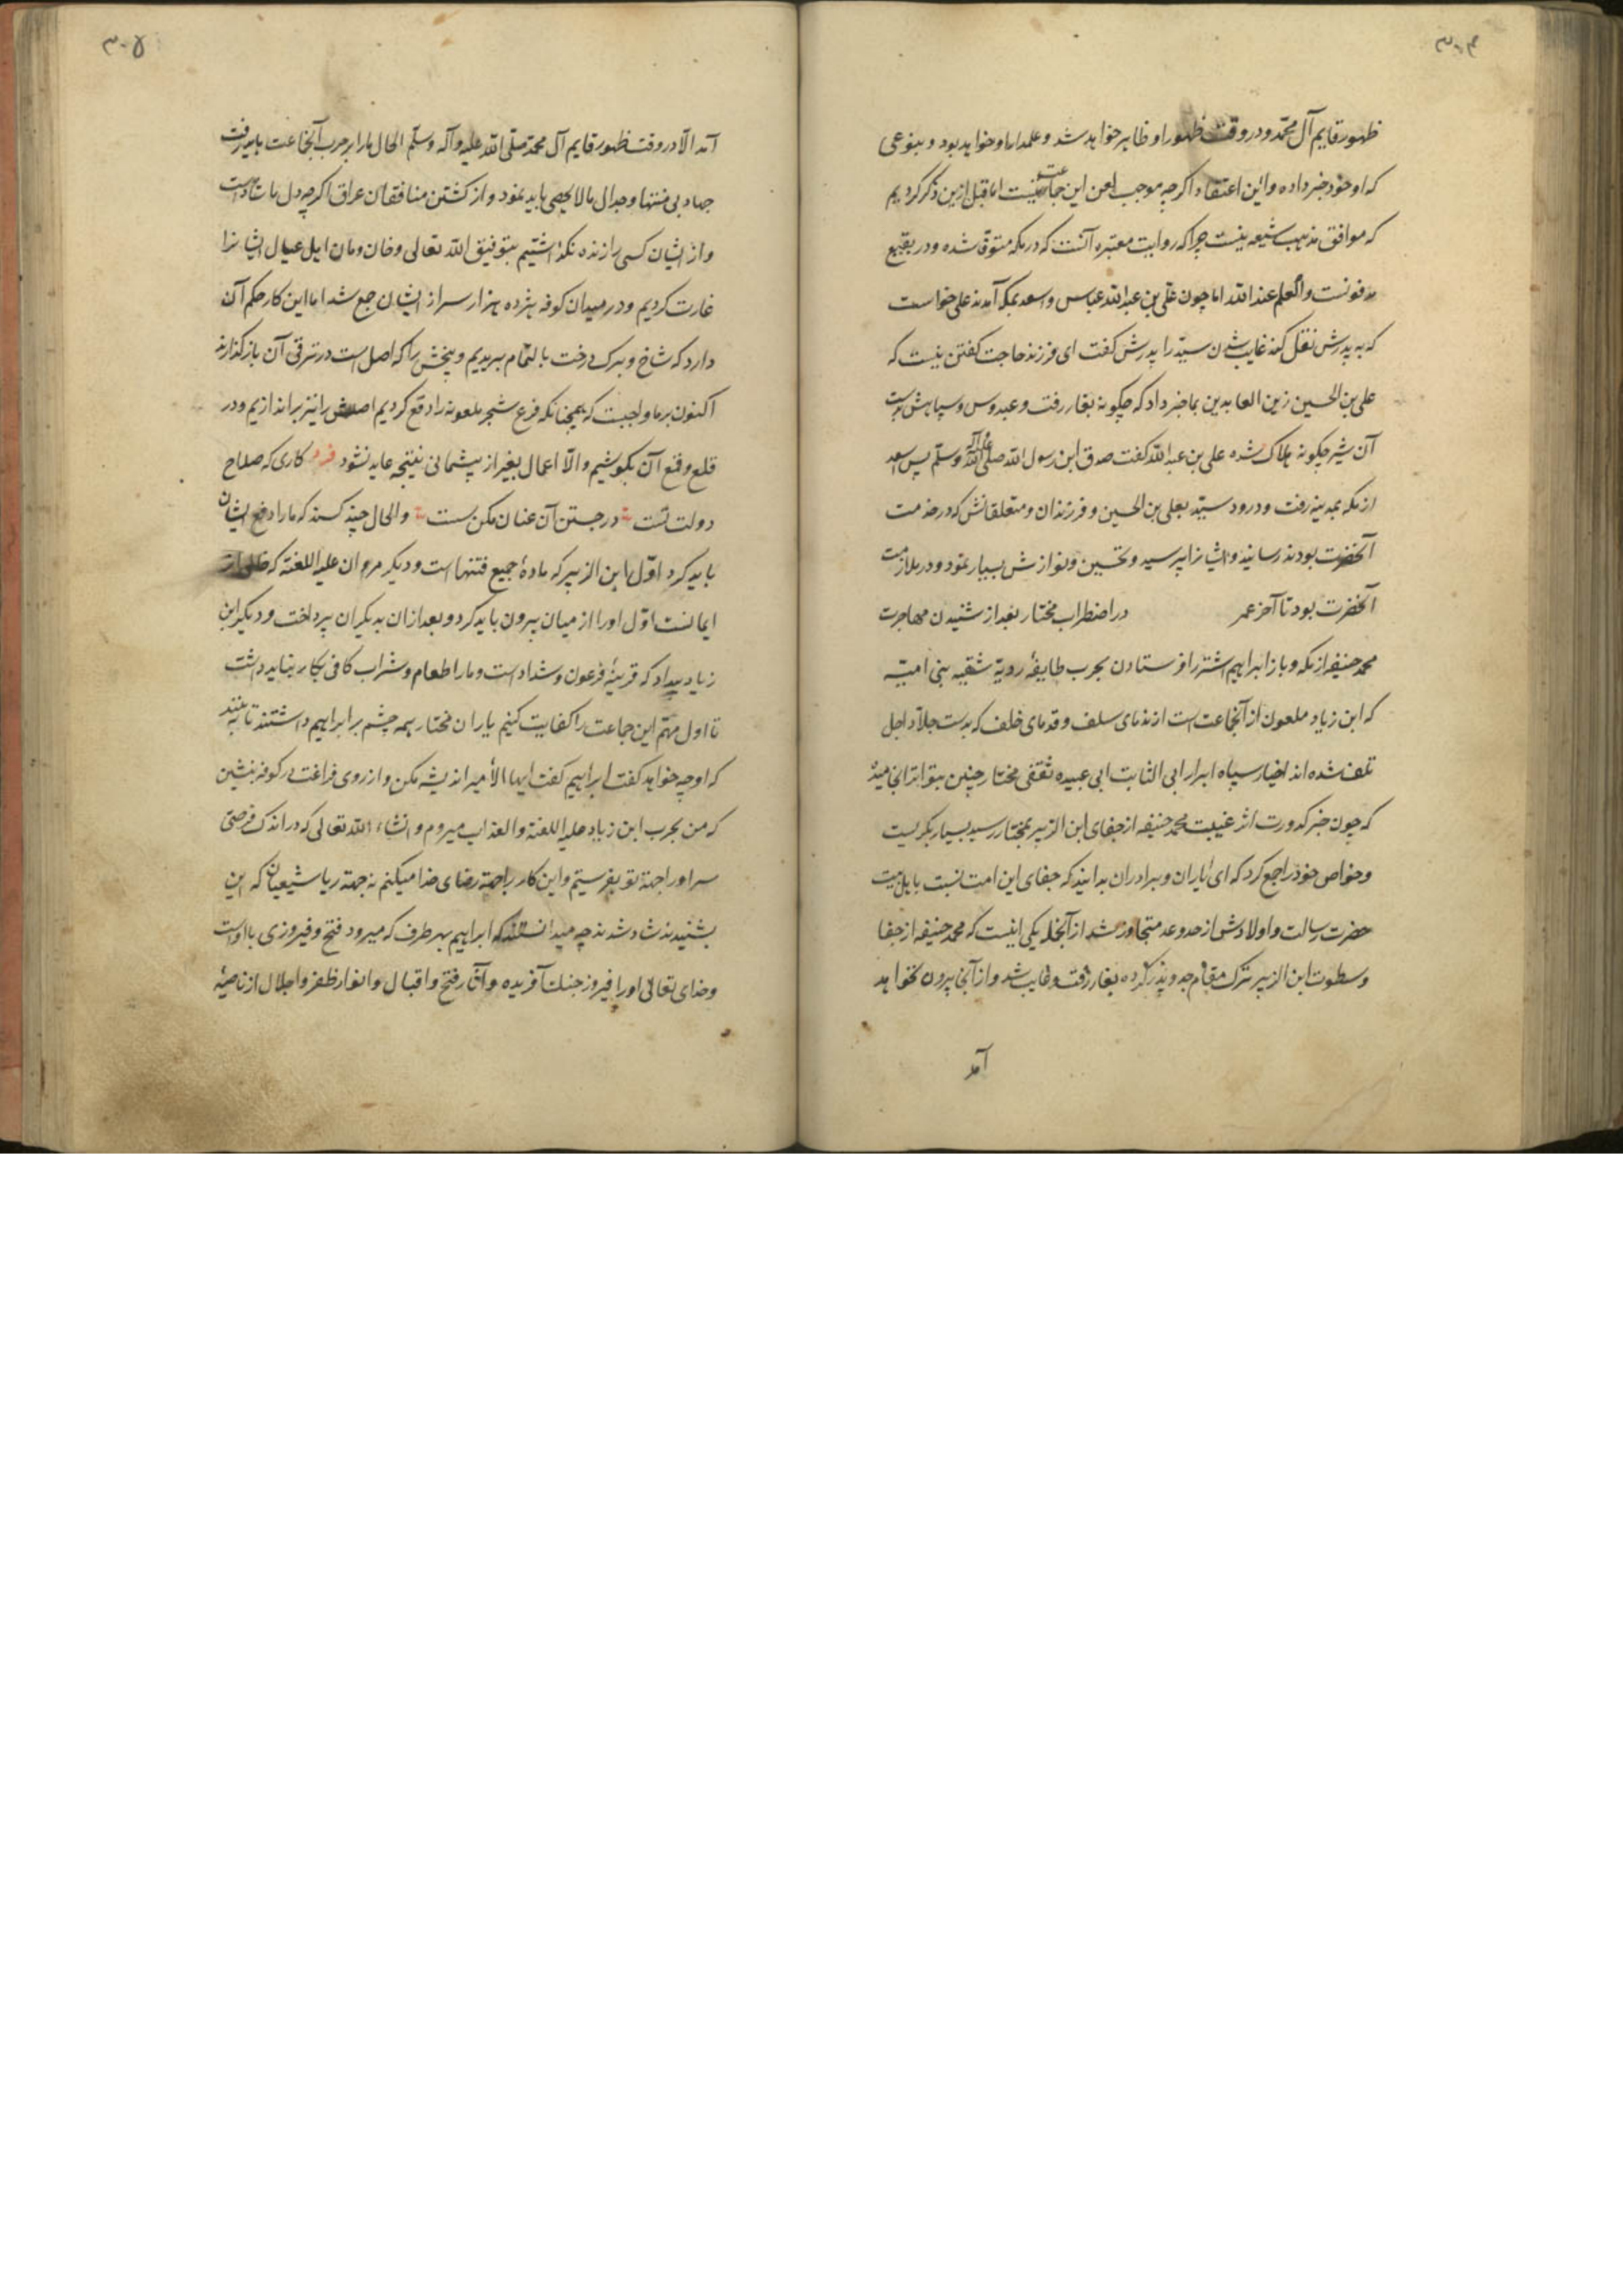 ۳۰۴
ظهور قایم آل محمّد و در وقت ظهور او ظاهر خواهد شد و علمدار او خواهد بود و بنوعی
که او خود خبر داده و این اعتقاد اکرچه موجب لعن این جماعت نیست اما قبل ازین ذکر کردیم
که موافق مذهب شیعه نیست چرا که روایت معتبره آنست که در مکه متوفّا شده و در بقیع
مدفونست والعلم عند الله اما چون علی بن عبدالله عباس و اسعد بمکه آمدند علی خواست
که به پدرش نقل کند غایب شدن سیّد را پدرش کفت ای فرزند حاجت کفتن نیست که
علی بن الحسین زین العابدین بما خبر داد که چکونه بغار رفت و عبدوس و سپاهش بدست
آن شیر چکونه هلاک شده علی بن عبدالله کفت صدق ابن رسول الله صلی الله علیه وآله وسلّم پس اسعد
از مکه بمدینه رفت و درود سیّد بعلی بن الحسین و فرزندان و متعلقانش که در خدمت
آنحضرت بودند رسانید و ایشانرا پرسید و تحسین و نوازش بسیار نمود و در ملازمت
آنحضرت بود تا آخر عمر در اضطراب مختار بعد از شنیدن مهاجرت
محمد حنیفه از مکه و باز ابراهیم اشتر را فرستادن بحرب طایفهٔ ردیّه شقیه بنی امیّه
که ابن زیاد ملعون از آنجماعت است از ندمای سلف و قدمای خلف که بدست جلاّد اجل
تلف شده اند اخیار سپاه ابرار ابی الثابت ابی عبیده ثقفی مختار چنین بتواتر انجامید
که چون خبر کدورت اثر غیبت محمد حنیفه از جفای ابن الزبیر بمختار رسید بسیار بکریست
و خواص خود را جمع کرد که ای یاران و برادران بدانید که جفای این امت نسبت باهل بیت
حضرت رسالت و اولادش از حد و عد متجاوز شد از آنجمله یکی اینست که محمد حنیفه از جفا
و سطوت ابن الزبیر ترک مقام جد و پدر کرده بغار رفت و غایب شد و از آنجا بیرون نخواهد
آمد
۳۰۵
آمد الّا در وقت ظهور قایم آل محمّد صلّی الله علیه وآله وسلّم الحال مارا بر حرب آنجماعت باید رفت
جهاد بی منتها و جدال مالا یحصی باید نمود و از کشتن منافقان عراق اکرچه دل ما شادست
و از ایشان کسی را زنده نکذاشتیم بتوفیق الله تعالی و خان و مان اهل عیال ایشانرا
غارت کردیم و در میدان کوفه هژده هزار سر از ایشان جمع شد اما این کار حکم آن
دارد که شاخ و برک درخت بالتمام ببریدیم و بیخش را که اصل است در ترقی آن بازکذارند
اکنون بر ما واجبست که همچنانکه فرع شجر ملعونه را دفع کردیم اصلش را نیز براندازیم و در
قلع و قمع آن بکوشیم و الّا اعمال بغیر از پشیمانی نتیجه عاید نشود فرد کاری که صلاح
دولت تست در جستن آن عنان مکن سست و الحال چند کسند که مارا دفع ایشان
باید کرد اوّل ابن الزبیر که مادهٔ جمیع فتنها است و دیکر مروان علیه اللعنه که
ایمانست اوّل اورا از میان بیرون باید کرد و بعد از ان بدیکران پرداخت و دیکر ابن
زیاد بیداد که قرینهٔ فرعون و شداد است و مارا طعام و شراب کافی بکار نباید داشت
تا اول مهمّ این جماعت را کفایت کنیم یاران مختار همه چشم بر ابراهیم داشتند تا به بینند
که او چه خواهد کفت ابراهیم کفت ایها الأمیر اندیشه مکن و از روی فراغت در کوفه بنشین
که من بحرب ابن زیاد علیه اللعنة والعذاب میروم و انشاء الله تعالی که در اندک فرصتی
سر اورا جهة تو بفرستیم و این کار را جهة رضای خدا میکنم نه جهة ریا شیعیان که این
بشنیدند شاد شدند چه میدانستند که ابراهیم بهر طرف که میرود فتح و فیروزی با اوست
و خدای تعالی اورا فیروز جنک آفریده و آثار فتح و اقبال و انوار ظفر و اجلال از ناصیهٔ